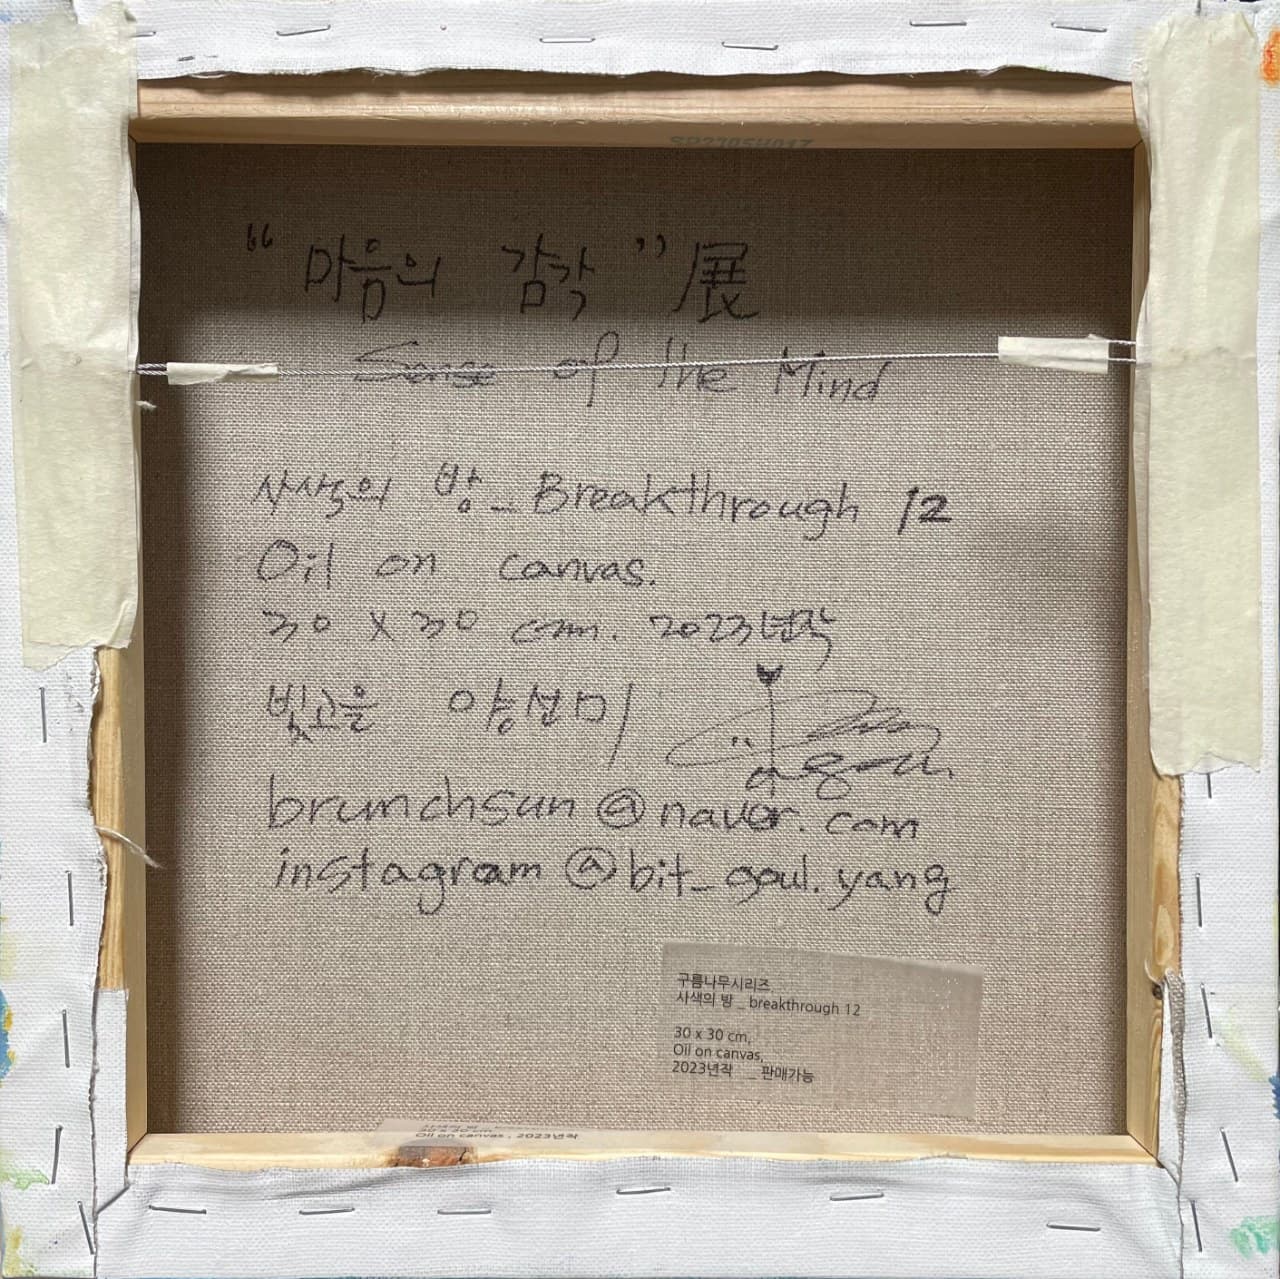 SP2305H017
“마음의 감각”展
Sense of the Mind
사색의 방_Breakthrough 12
Oil on canvas.
30 x 30 cm. 2023년작
빛고을 양선미
brunchsun@naver.com
instagram @bit_goul.yang
구름나무시리즈,
사색의 방 _ breakthrough 12
30 x 30 cm,
Oil on canvas,
2023년작 _ 판매가능
사색의 방
30 x 30 cm,
Oil on canvas, 2023년작